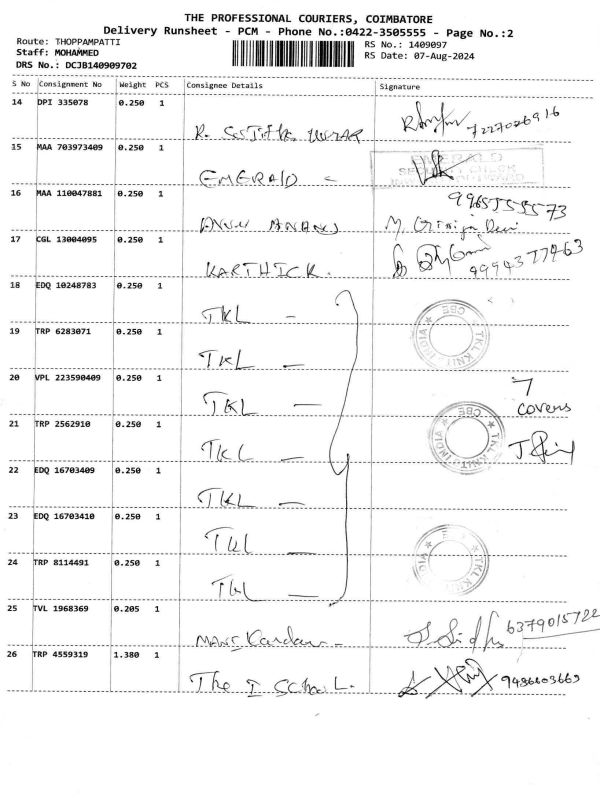 THE PROFESSIONAL COURIERS, COIMBATORE
Delivery Runsheet - PCM - Phone No.:0422-3505555 - Page No.:2
Route: THOPPAMPATTI
Staff: MOHAMMED
DRS No.: DCJB140909702
RS No.: 1409097
RS Date: 07-Aug-2024
S No Consignment No Weight PCS Consignee Details Signature
14 DPI 335078 0.250 1
R. KUMAR
15 MAA 703973409 0.250 1
EMERALD - EMERALD
16 MAA 110047881 0.250 1 9965555573
ANU ANAND M. Girija Devi
17 CGL 13004095 0.250 1
KARTHICK. 9994377263
18 EDQ 10248783 0.250 1
TKL - TKL KNIT INDIA CBE
19 TRP 6283071 0.250 1
TKL -
20 VPL 223590409 0.250 1 7
TKL - covers
21 TRP 2562910 0.250 1
TKL - TKL KNIT INDIA CBE
22 EDQ 16703409 0.250 1
TKL -
23 EDQ 16703410 0.250 1
TKL -
24 TRP 8114491 0.250 1
TKL - TKL KNIT INDIA
25 TVL 1968369 0.205 1
Manikandan - 6379015722
26 TRP 4559319 1.380 1
The I School. 9486603669